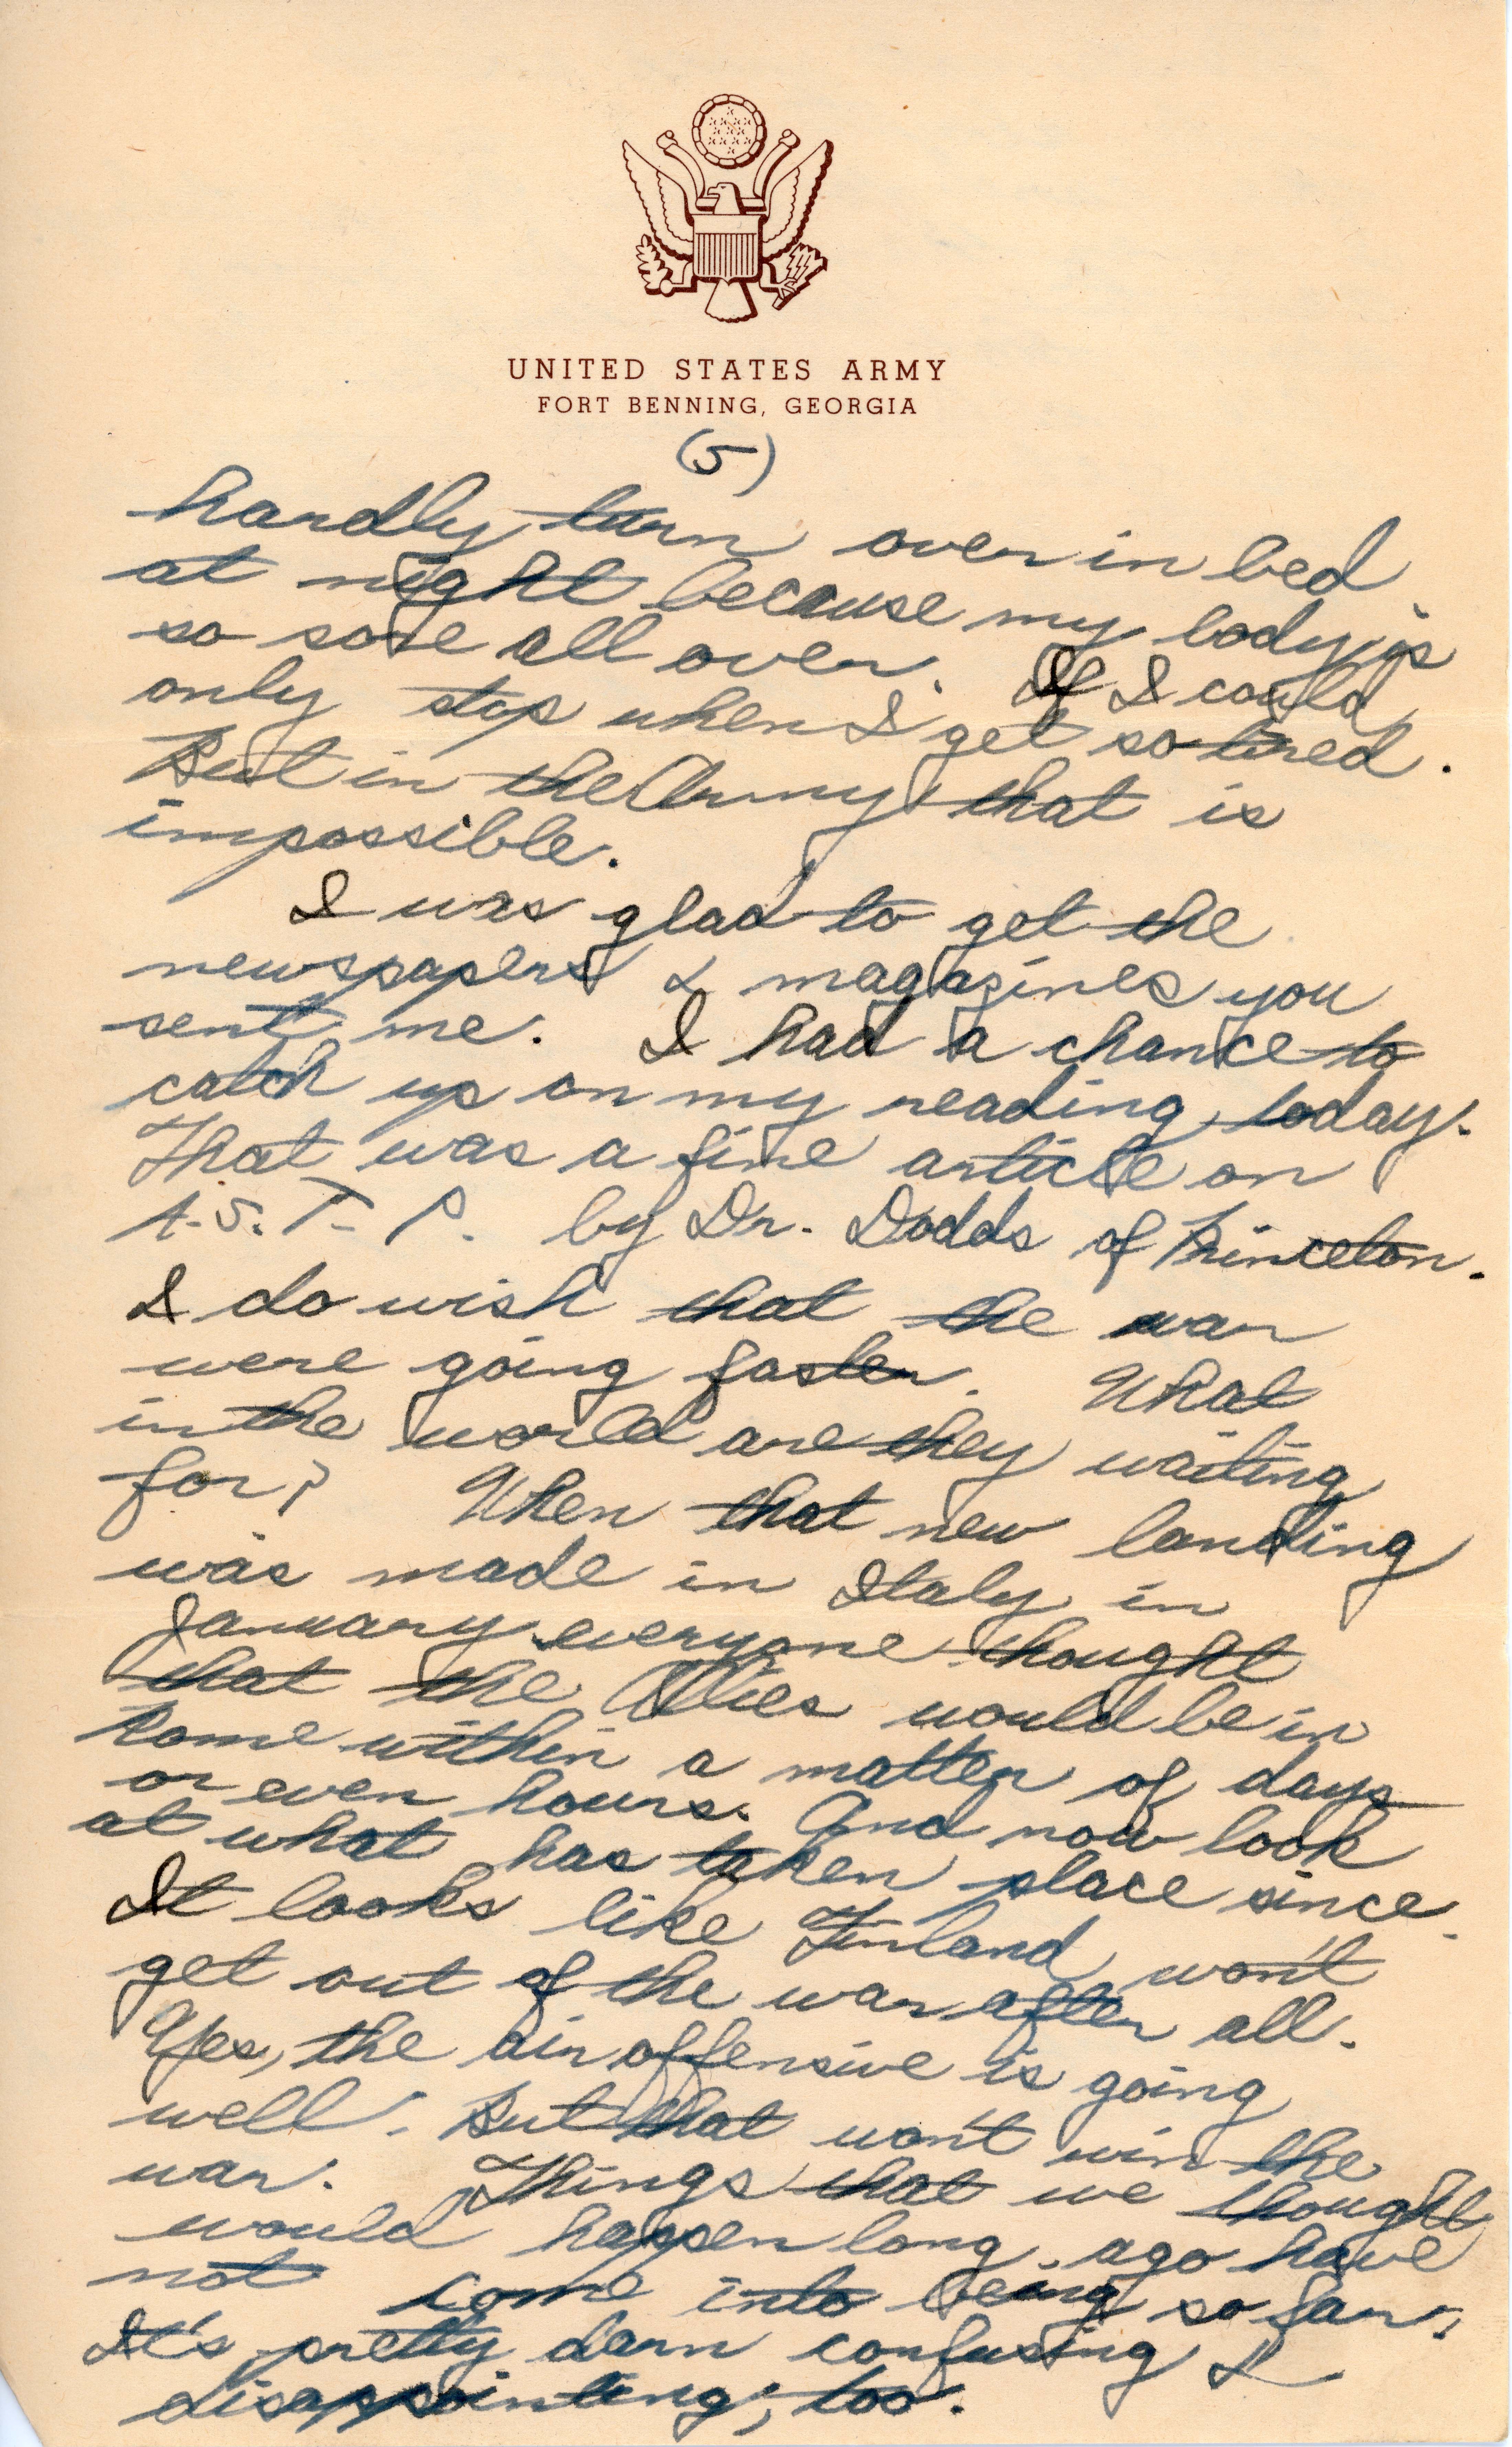 UNITED STATES ARMY
FORT BENNING, GEORGIA
(5)
hardly turn over in bed
at night because my body is
so sore all over. If I could
only stop when I get so tired.
But in the Army that is
impossible.
I was glad to get the
newspapers & magazines you
sent me. I had a chance to
catch up on my reading today.
That was a fine article on
A.S.T.P. by Dr. Dodds of Princeton.
I do wish that the war
were going faster. What
in the world are they waiting
for? When that new landing
was made in Italy in
January everyone thought
that the Allies would be in
Rome within a matter of days
or even hours. And now look
at what has taken place since.
It looks like Finland won't
get out of the war after all.
Yes, the air offensive is going
well. But that won't win the
war. Things that we thought
would happen long ago have
not come into being so far.
It's pretty darn confusing &
disappointing, too.